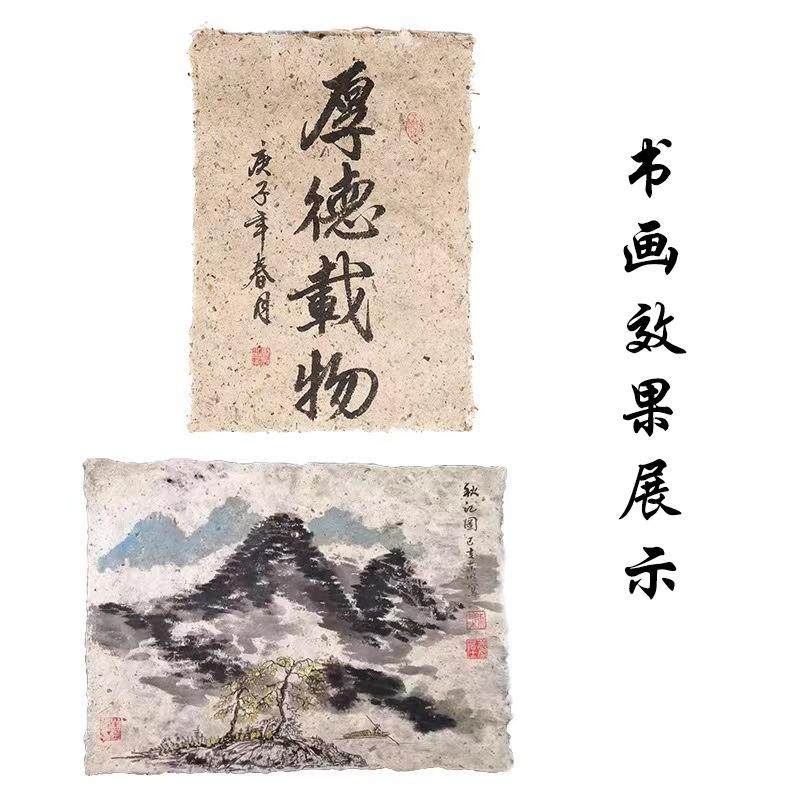 厚德載物
庚子年春月
秋江圖
书画效果展示